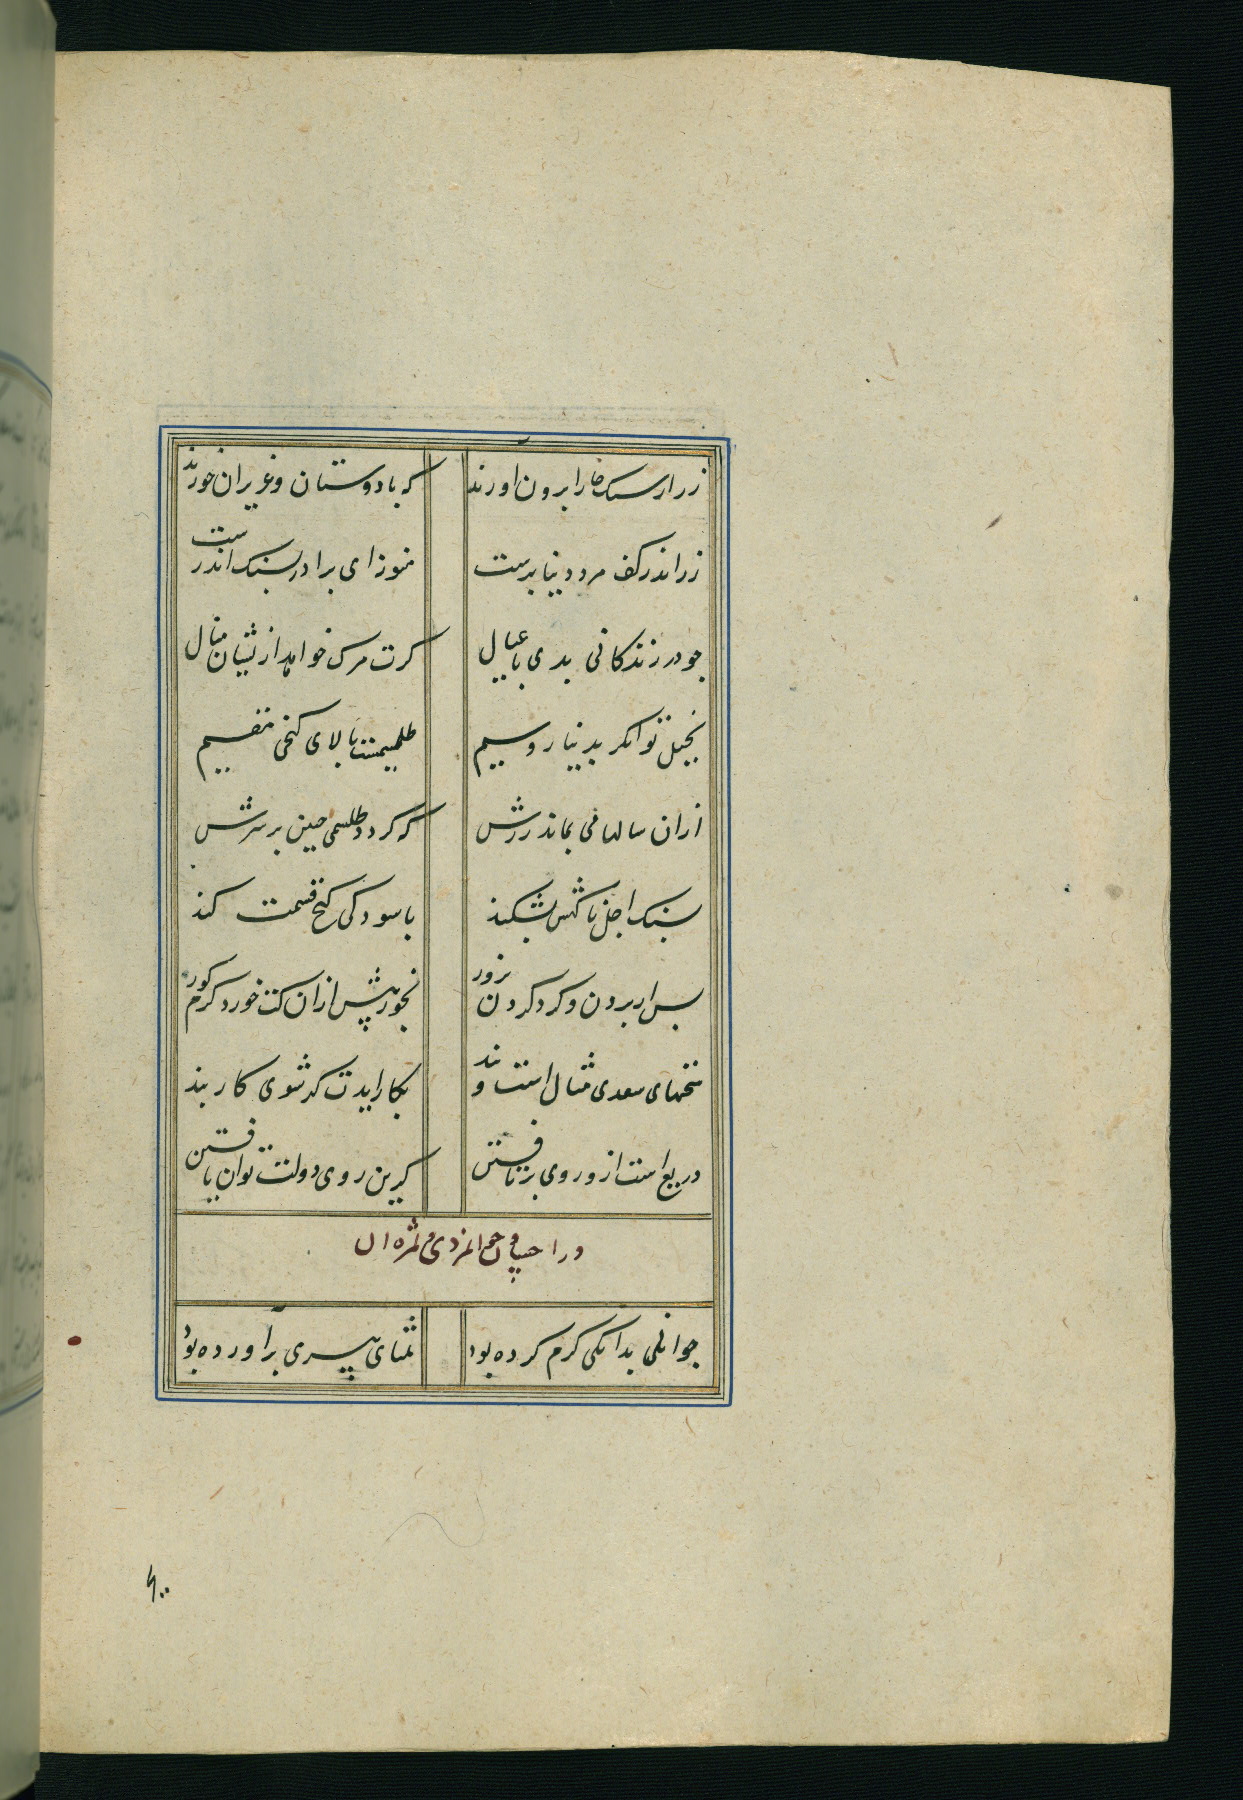 زر از سنک خارا برون اورند که با دوستان و عزیزان خورند
زر اندر کف مرد دنیا پرست هنوز ای برادر بسنک اندرست
چو در زندکانی بدی با عیال کرت مرک خواهد ازیشان منال
بخیل توانکر بدینار و سیم طلسمیست بالای کنجی مقیم
از ان سالها می بماند زرش که کردد طلسمی چنین بر سرش
بسنک اجل ناکهش بشکنند باسودکی کنج قسمت کنند
پس از بردن و کرد کردن بزور بخور پیش از ان کت خورد کرم کور
سخنهای سعدی مثال است و پند بکار ایدت کر شوی کار بند
دریغ است ازو روی بر تافتن کزین روی دولت توان یافتن
در احسان و جوانمردی و ثمره ان
جوانی بدانکی کرم کرده بود تمنای پیری براورده بود